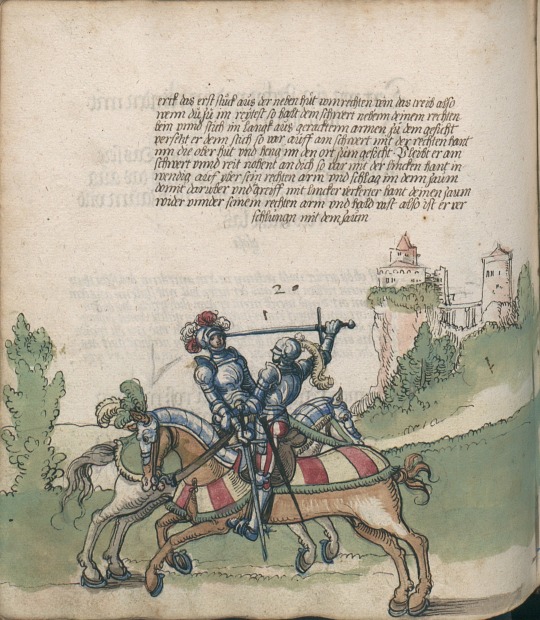 merck das erst stuck aus der neben hut vom rechten pain das treib also
wenn du zu im reytest so halt dem schwert nebenn deinem rechten
bein vnnd stich im langk aus gerackten armen zu dem gesicht
verseht er denn stich so var auff am schwert mit der rechten hant
inn die ober hut vnd heng im den ort zum gesicht Bleibt er am
schwert vnnd reit nahent an dich so var mit der lincken hant in
wendig auf vber sein rechten arm vnd schlag im dem zaum
damit daruber vnd greiff mit lincker verkerter hant deinen zaum
wider vnnder seinem rechten arm vnd hald vast also ist er ver
schlungn mit dem zaum
20
1
1